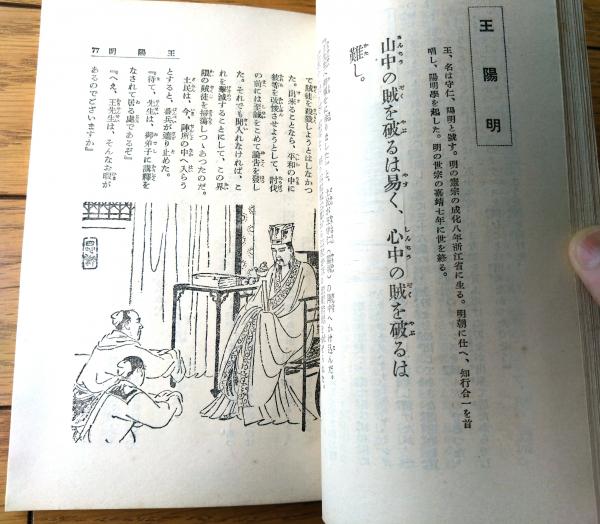 王陽明
王、名は守仁、陽明と號す。明の憲宗の成化八年浙江省に生る。明朝に仕へ、知行合一を首
唱し、陽明學を起した。明の世宗の嘉靖七年に世を終る。
山中の賊を破るは易く、心中の賊を破るは
難し。
王陽明
77
で賊徒を殺戮しようとはしなかつ
た。出來ることなら、平和の中に
彼等を改悛させようとして、討伐
の前には至誠をこめて諭告を發し
た。それでも聞入れなければ、こ
れを擊滅することにして、この界
隈の賊徒を掃蕩しつゝあつたのだ。
土民は、今、陣所の中へ入らう
とすると、番兵が遮り止めた。
『待て、先生は、御弟子に講釋を
なされて居る處であるぞ』
『へえ、王先生は、そんなお暇が
あるのでございますか』